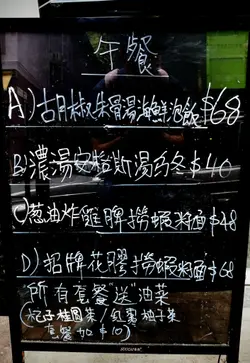 午餐
A)胡椒朱骨湯海鮮泡飯$68
B)濃湯安格斯湯巧冬$40
C)葱油炸雞脾撈蝦籽面$48
D)招牌花膠撈蝦籽面$68
所有套餐送"油菜
(杞子桂圓茶/紅棗柚子茶
套餐加$10)